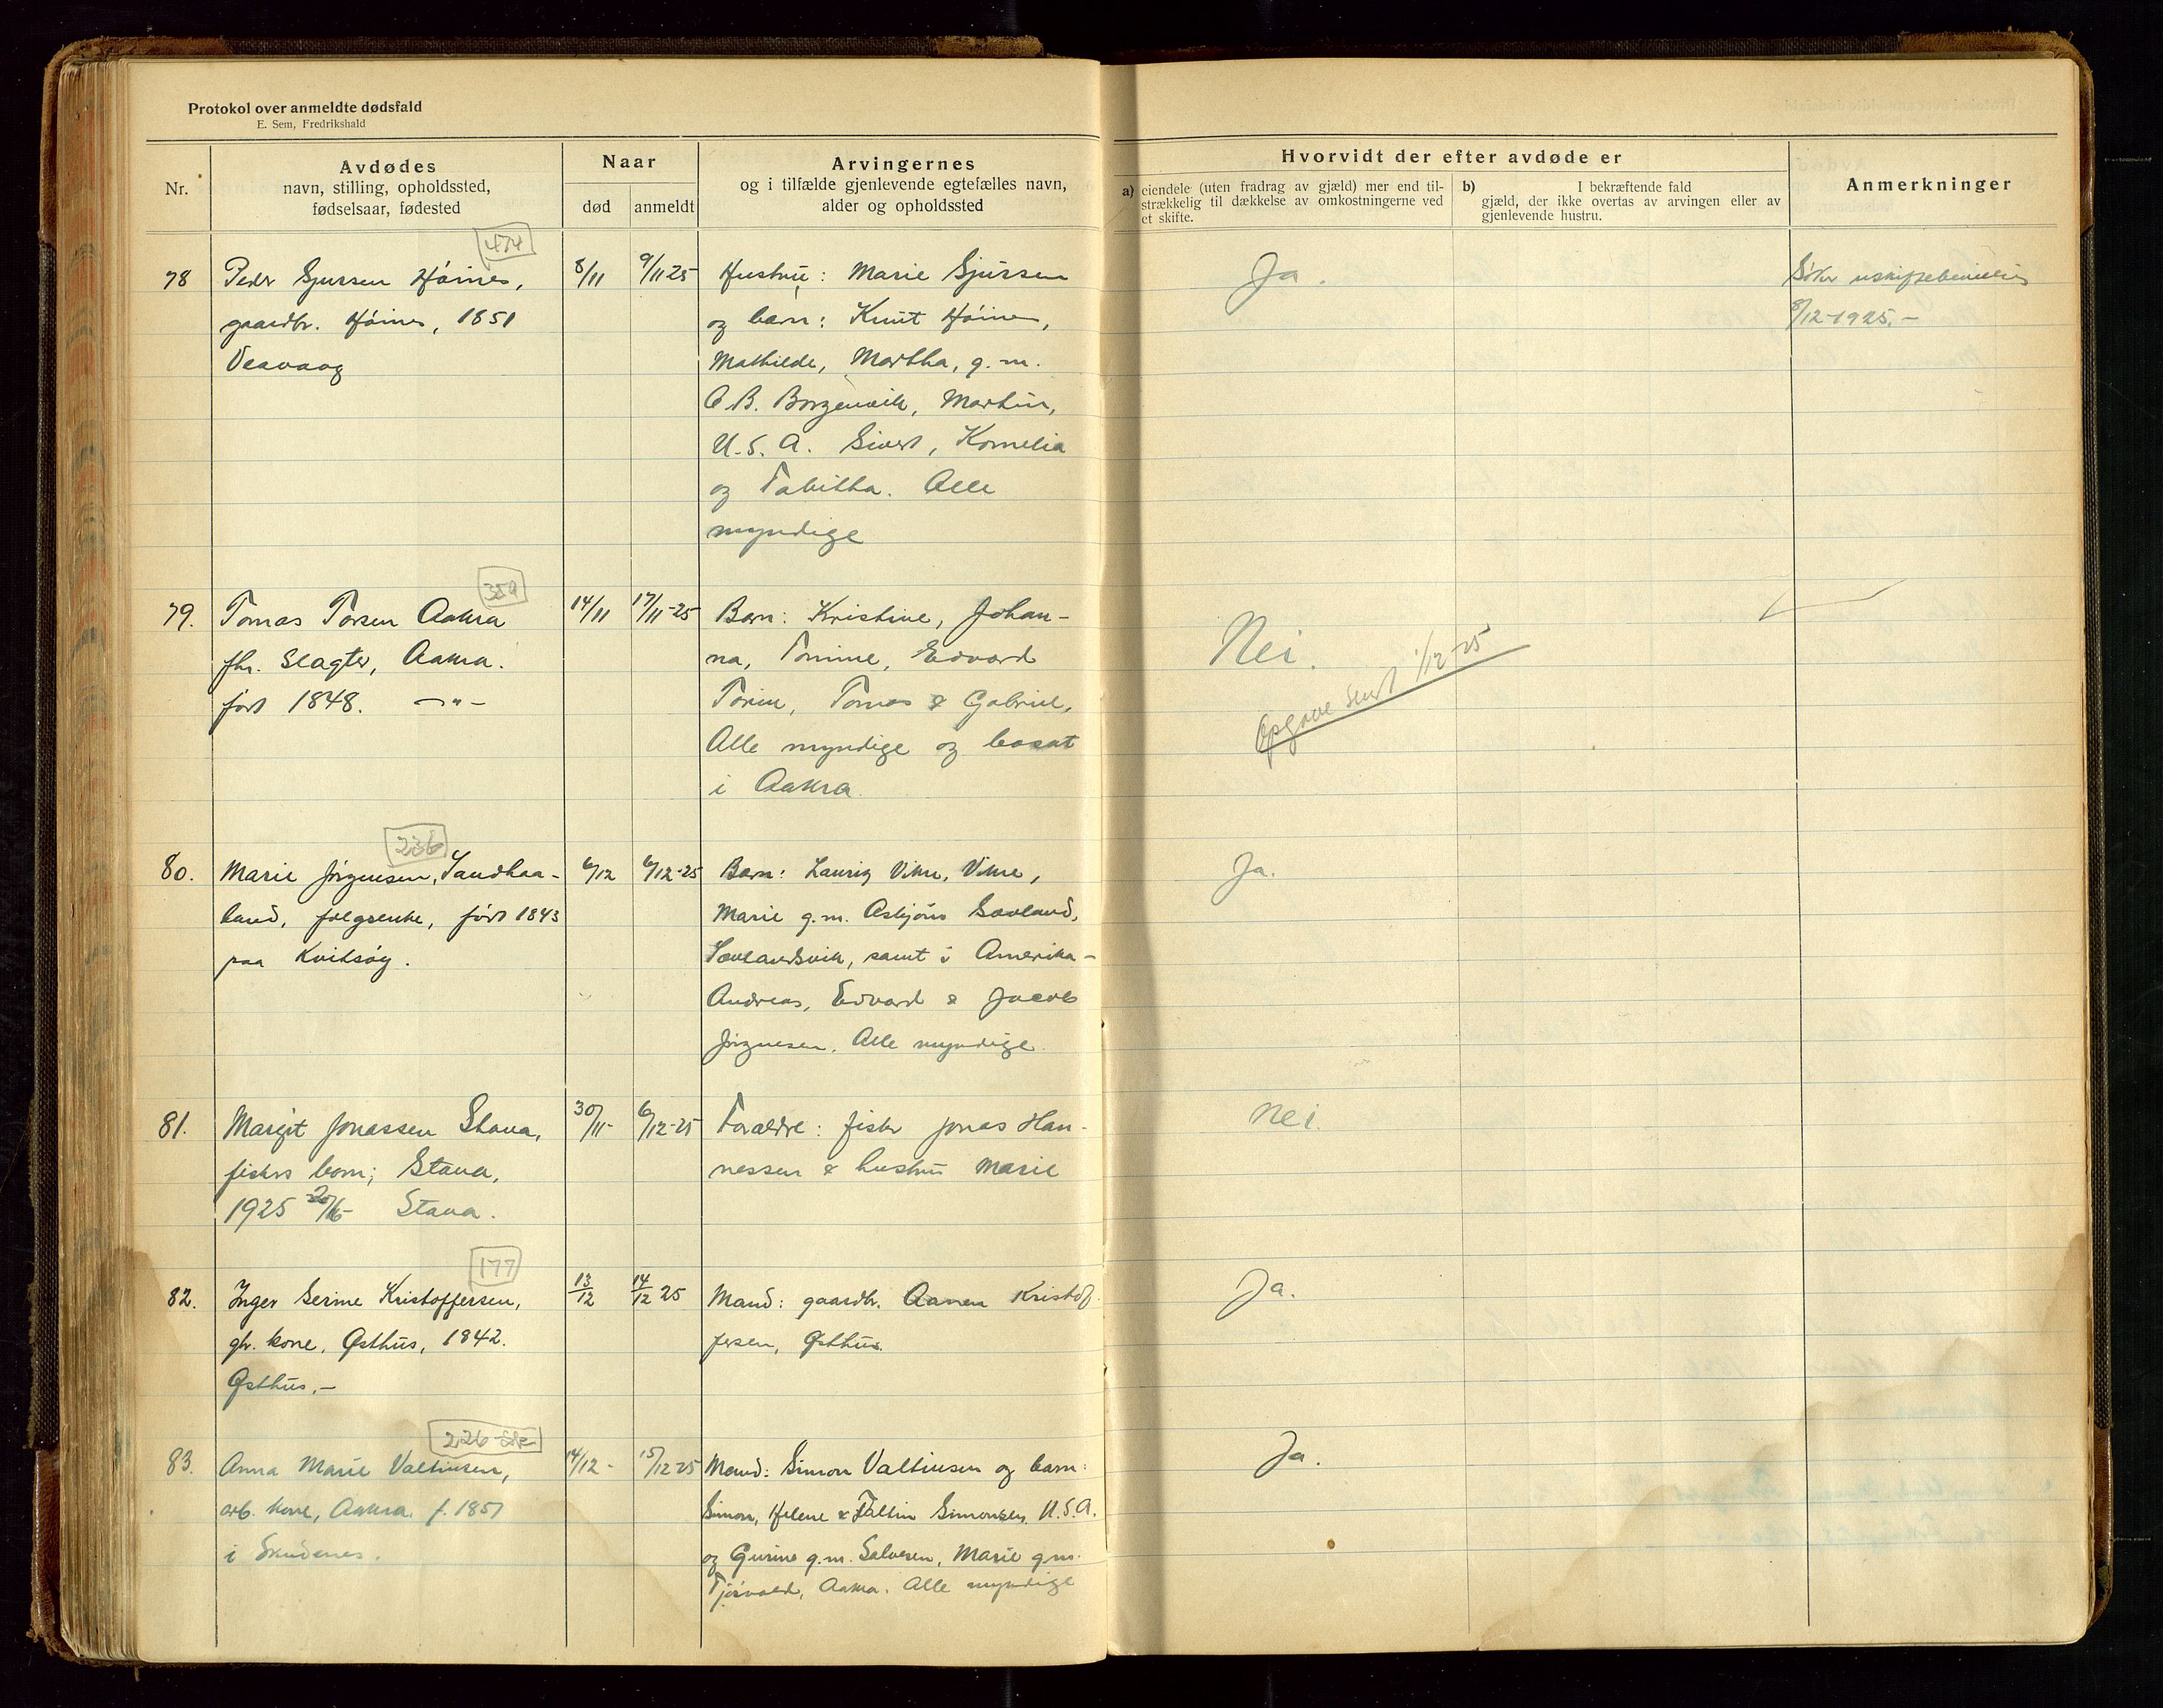 Protokol over anmeldte dødsfald
E. Sem, Fredrikshald
Nr.
Avdødes
navn, stilling, opholdssted,
fødselsaar, fødested
Naar
død
anmeldt
Arvingernes
og i tilfælde gjenlevende egtefælles navn,
alder og opholdssted
Hvorvidt der efter avdøde er
a) eiendele (uten fradrag av gjæld) mer end til-
strækkelig til dækkelse av omkostningerne ved
et skifte.
b) I bekræftende fald
gjæld, der ikke overtas av arvingen eller av
gjenlevende hustru.
Anmerkninger
474
78 Peder Sjursen Høines,
gaardbr. Høines, 1851
Veavaag
8/11
9/11 25
Hustru: Marie Sjursen
og barn: Knut Høines,
Mathilde, Martha, g.m.
O.B. Borgenvik, Martin,
U.S.A. Sivert, Kornelia
og Tabitha. Alle
myndige
Ja.
Søker uskiftebevilling
8/12-1925.-
359
79. Tomas Torsen Aakra
fhv. slagter, Aakra.
født 1848. -"-
14/11
17/11-25
Barn: Kristine, Johan-
na, Tomine, Edvard
Torin, Tomas & Gabriel,
Alle myndige og bosat
i Aakra.
Nei.
Opgave sendt 1/12-25
236
80. Marie Jørgensen, Sandhaa-
land, folgeenke, født 1843
paa Kvitsøy.
6/12
6/12-25
Barn: Lauritz Vikre, Vikre,
Marie g.m. Asbjørn Sævland,
Sævlandsvik, samt i Amerika-
Andreas, Edvard & Jacob
Jørgensen. Alle myndige.
Ja.
81. Margit Jonassen Stava,
fiskers barn; Stava,
1925 Stava.
30/11-
6/12-25
Forældre: fisker Jonas Han-
nessen & hustru Marie
Nei.
177
82. Inger Serine Kristoffersen,
gbr. kone, Østhus, 1842.
Østhus.-
13/12
14/12 25
Mand: gaardbr. Aanen Kristof-
fersen, Østhus.
Ja.
226
83. Anna Marie Valtinsen,
arb. kone, Aakra. f. 1851
i Skudenes.
14/12-
15/12 25
Mand: Simon Valtinsen og barn:
Simon, Helene & Faltin Simonsen, U.S.A.
og Gurine g.m. Salvesen, Marie g.m.
Tjøsvold, Aakra. Alle myndige
Ja.